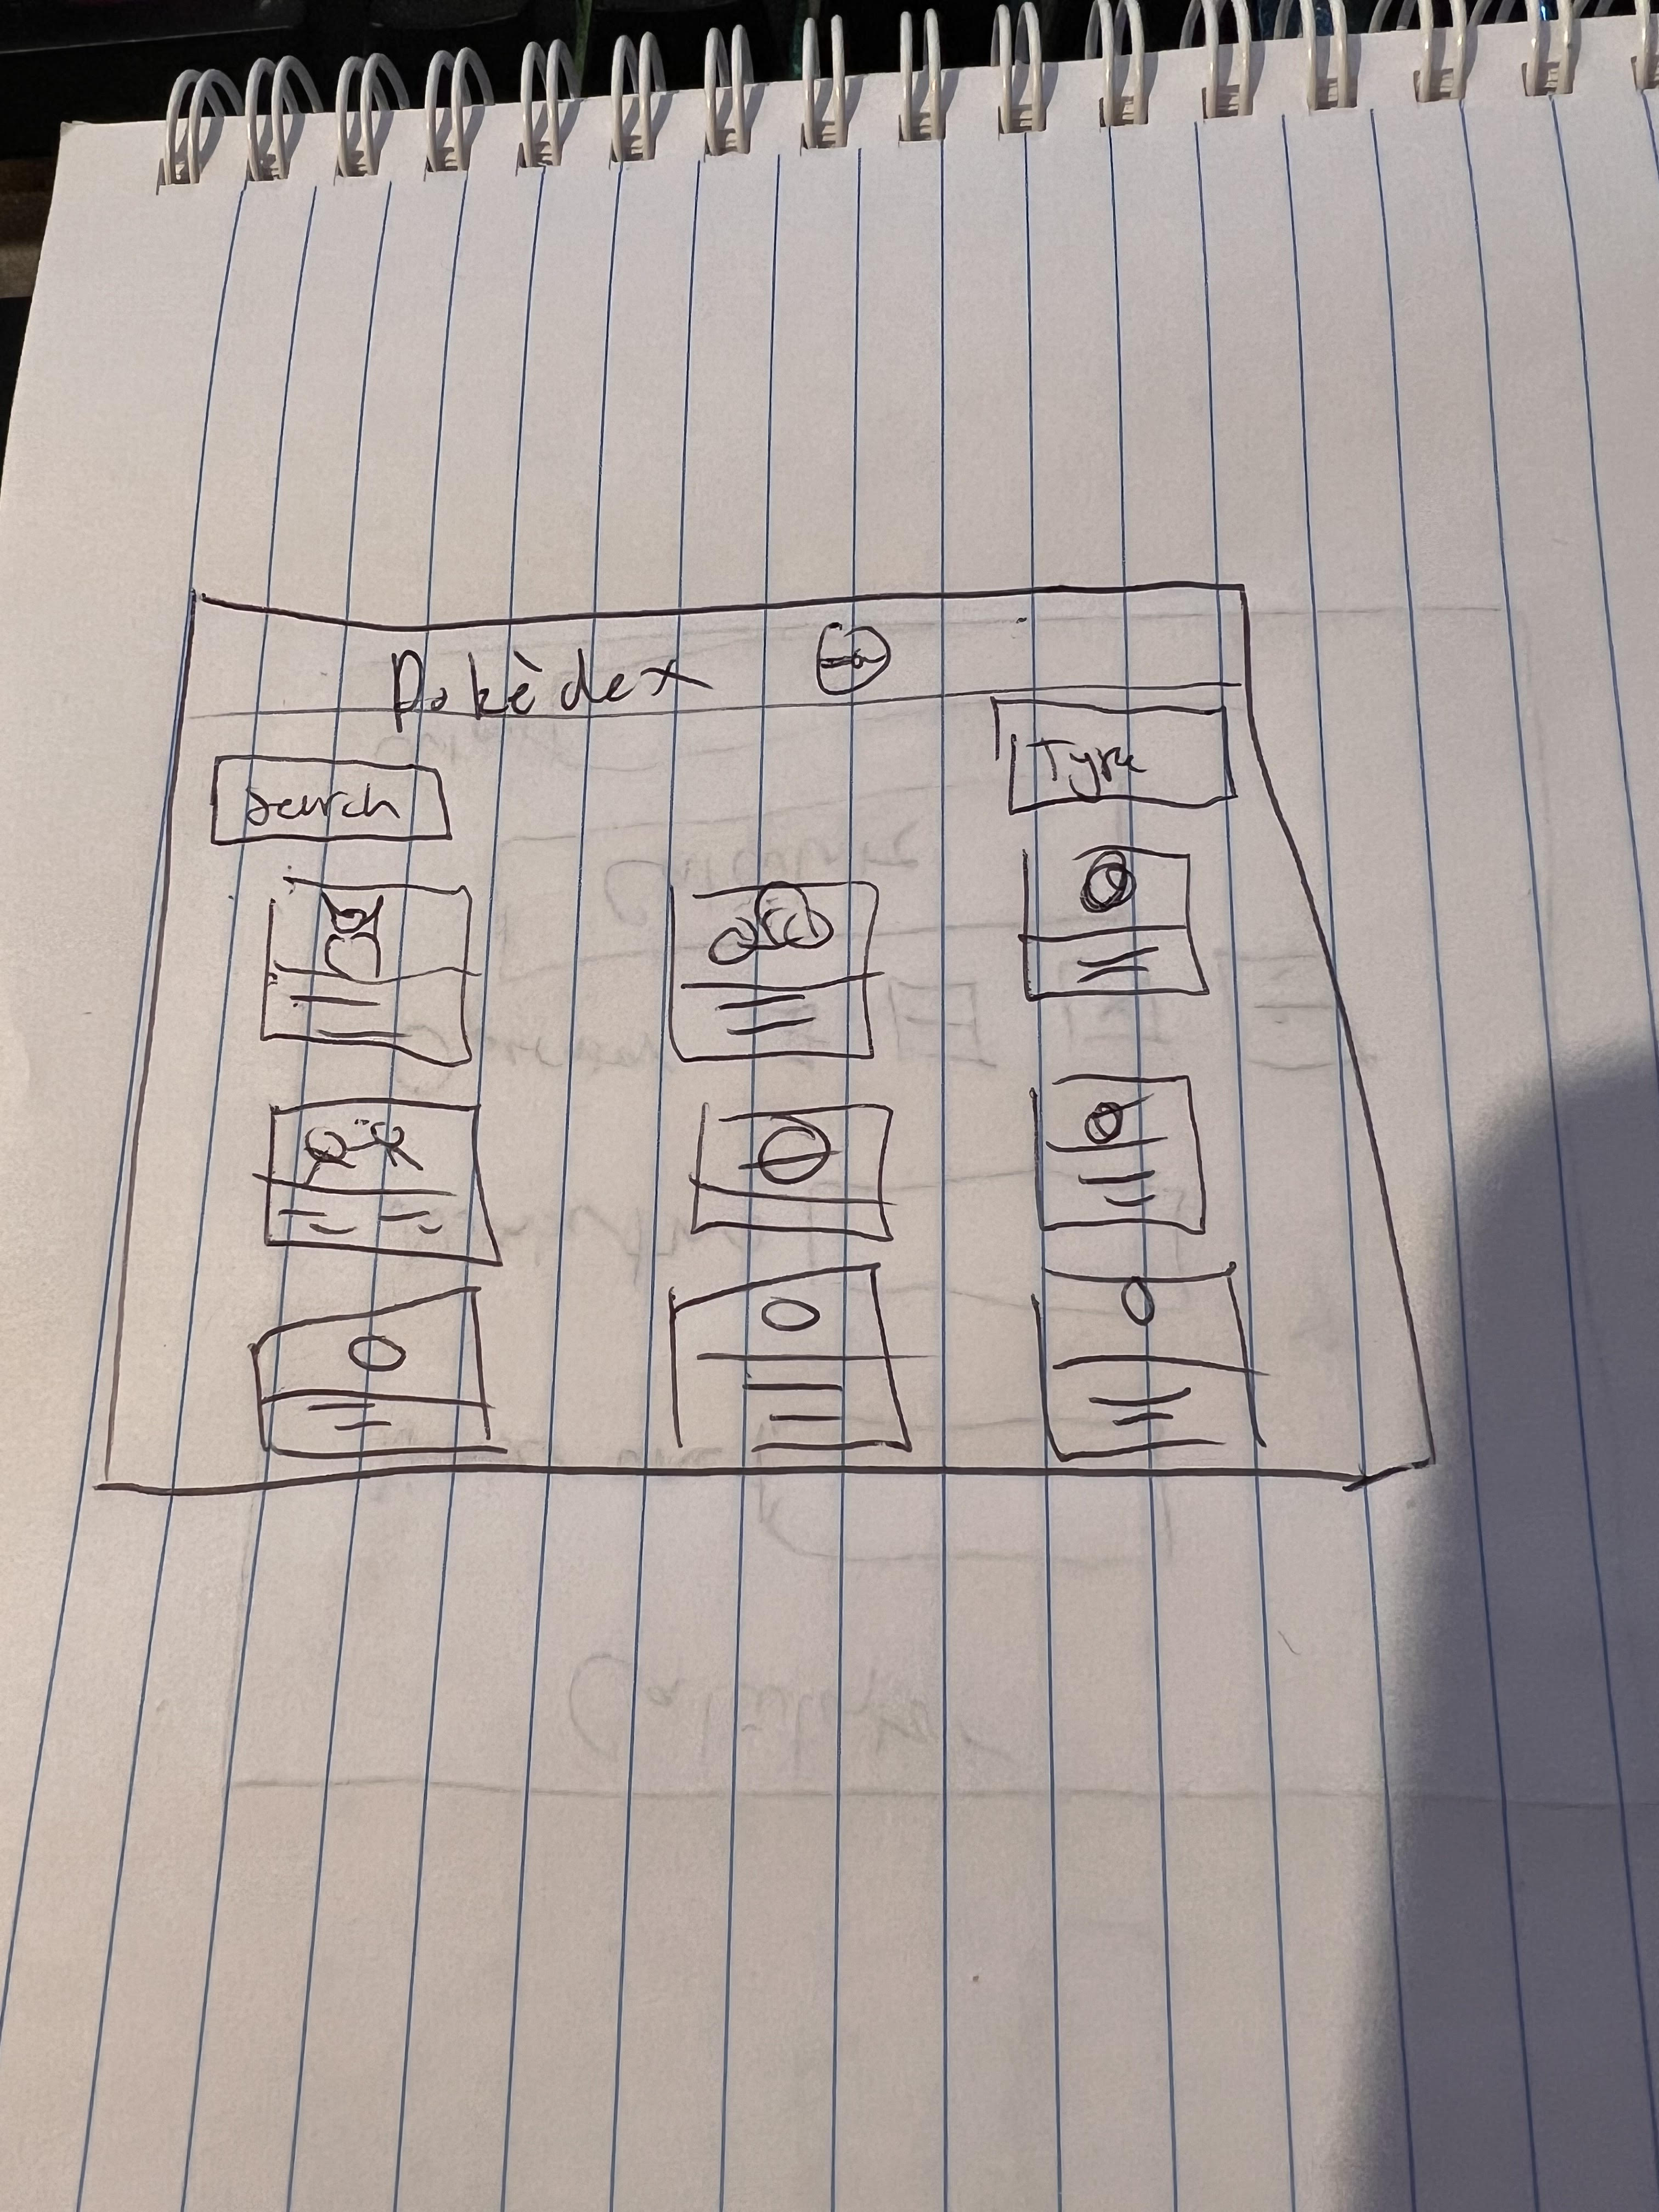 Pokèdex
Search
Type